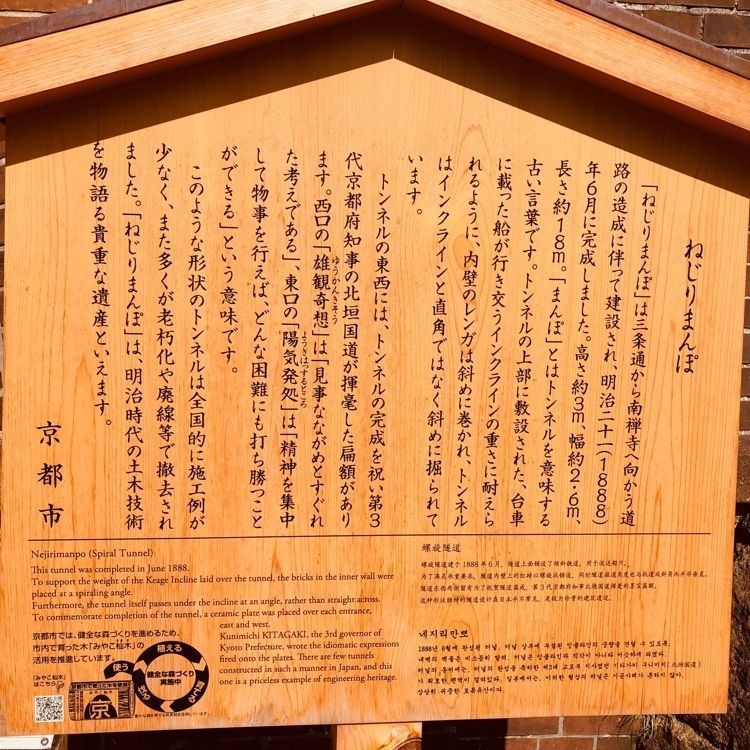 ねじりまんぽ
「ねじりまんぽ」は三条通から南禅寺へ向かう道
路の造成に伴って建設され、明治二十一(1888)
年6月に完成しました。高さ約3m、幅約2.6m、
長さ約18m。「まんぽ」とはトンネルを意味する
古い言葉です。トンネルの上部に敷設された、台車
に載った船が行き交うインクラインの重さに耐えら
れるように、内壁のレンガは斜めに巻かれ、トンネル
はインクラインと直角ではなく斜めに掘られて
います。
トンネルの東西には、トンネルの完成を祝い第3
代京都府知事の北垣国道が揮毫した扁額があり
ます。西口の「雄観奇想」は「見事なながめとすぐれ
た考えである」、東口の「陽気発処」は「精神を集中
して物事を行えば、どんな困難にも打ち勝つこと
ができる」という意味です。
このような形状のトンネルは全国的に施工例が
少なく、また多くが老朽化や廃線等で撤去され
ました。「ねじりまんぽ」は、明治時代の土木技術
を物語る貴重な遺産といえます。
京都市
Nejirimanpo (Spiral Tunnel)
This tunnel was completed in June 1888.
To support the weight of the Keage Incline laid over the tunnel, the bricks in the inner wall were
placed at a spiraling angle.
Furthermore, the tunnel itself passes under the incline at an angle, rather than straight across.
To commemorate completion of the tunnel, a ceramic plate was placed over each entrance,
east and west.
Kunimichi KITAGAKI, the 3rd governor of
Kyoto Prefecture, wrote the idiomatic expressions
fired onto the plates. There are few tunnels
constructed in such a manner in Japan, and this
one is a priceless example of engineering heritage.
京都市では、健全な森づくりを進めるため、
市内で育った木「みやこ杣木」の
活用を推進しています。
「みやこ杣木」
はこちら
使う
植える
健全な森づくり
実施中
京
螺旋隧道
螺旋隧道建于1888年6月，隧道上面铺设了倾斜铁道，用于运送船只。
네지리만뽀